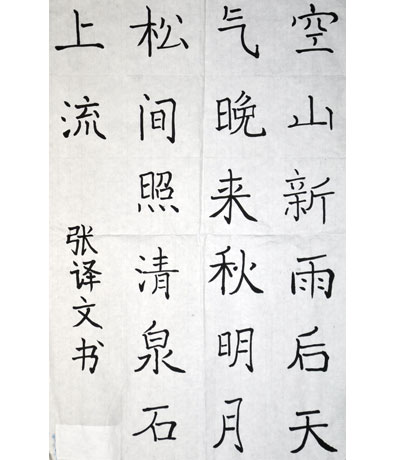 空山新雨后天
气晚来秋明月
松间照清泉石
上流
张译文书